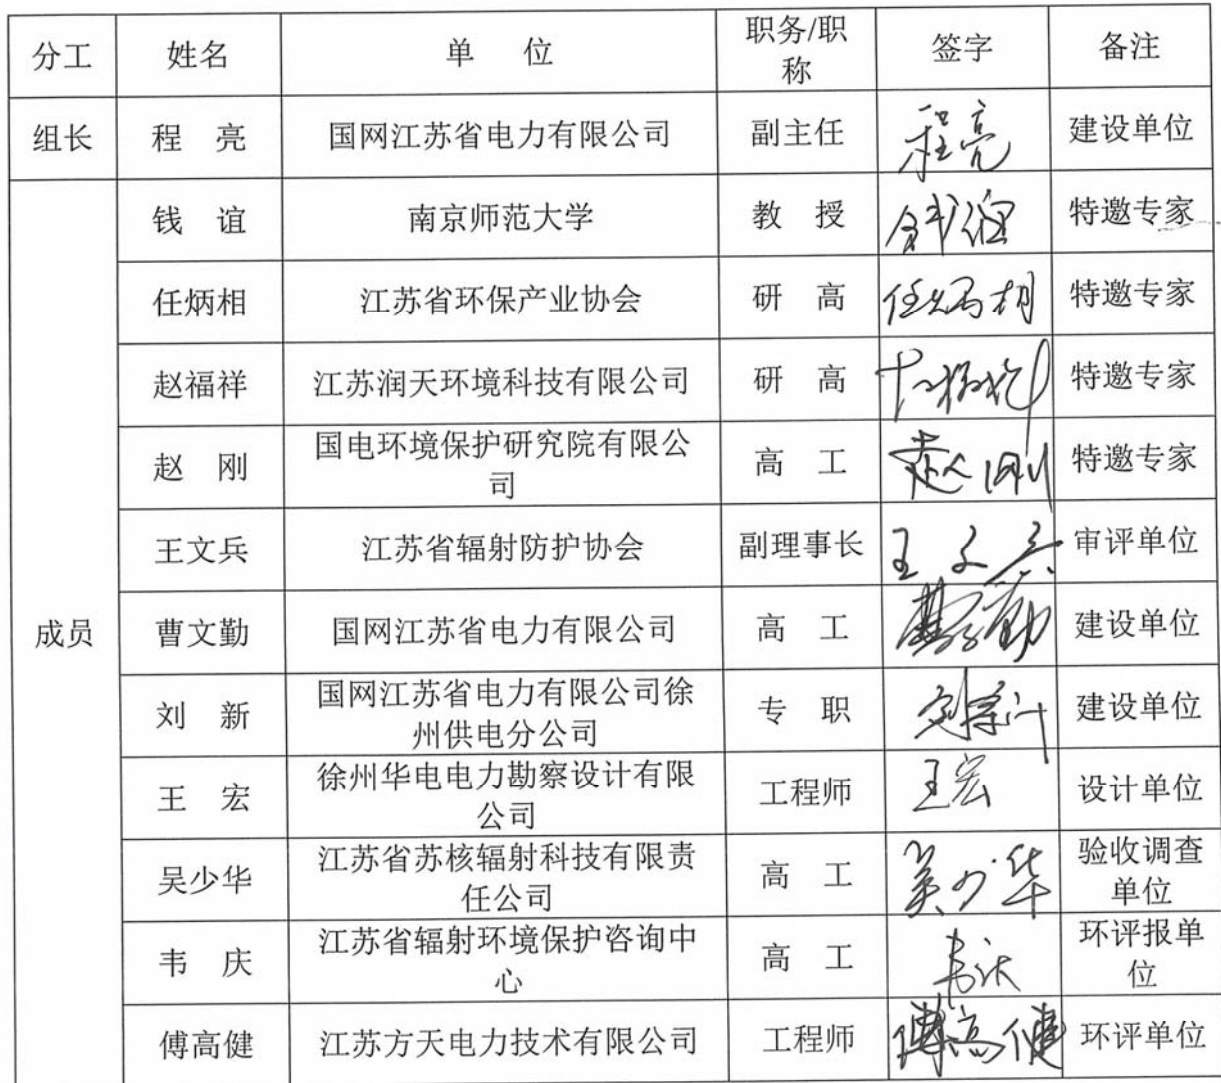 分工 姓名 单 位 职务/职称 签字 备注
组长 程 亮 国网江苏省电力有限公司 副主任 程亮 建设单位
成员
钱 谊 南京师范大学 教 授 钱谊 特邀专家
任炳相 江苏省环保产业协会 研 高 任炳相 特邀专家
赵福祥 江苏润天环境科技有限公司 研 高 特邀专家
赵 刚 国电环境保护研究院有限公司 高 工 赵刚 特邀专家
王文兵 江苏省辐射防护协会 副理事长 王文兵 审评单位
曹文勤 国网江苏省电力有限公司 高 工 曹文勤 建设单位
刘 新 国网江苏省电力有限公司徐州供电分公司 专 职 刘新 建设单位
王 宏 徐州华电电力勘察设计有限公司 工程师 王宏 设计单位
吴少华 江苏省苏核辐射科技有限责任公司 高 工 吴少华 验收调查单位
韦 庆 江苏省辐射环境保护咨询中心 高 工 韦庆 环评报单位
傅高健 江苏方天电力技术有限公司 工程师 傅高健 环评单位